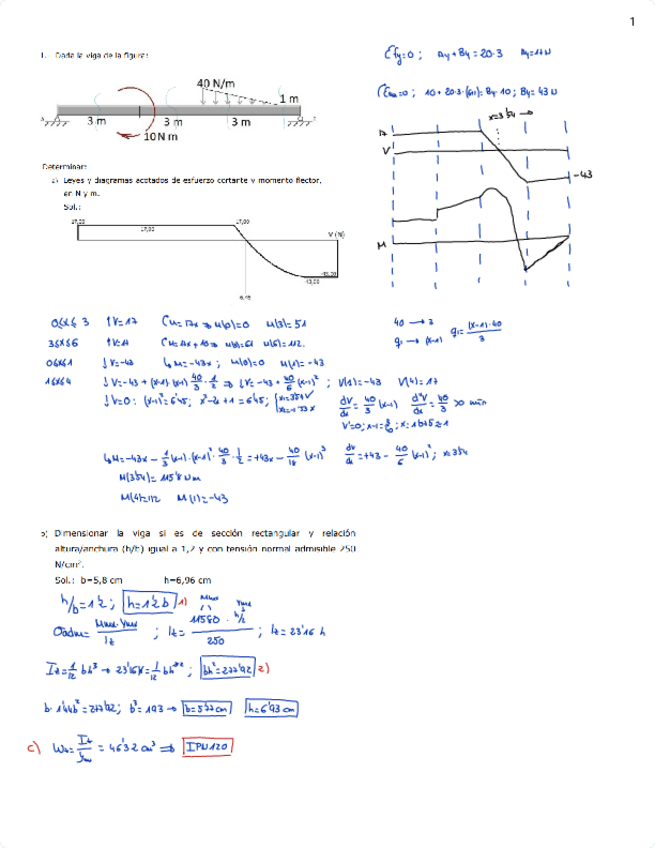 1
1. Dada la viga de la figura:
40 N/m
1 m
3 m
3 m
3 m
10N m
Determinar:
a) Leyes y diagramas acotados de esfuerzo cortante y momento flector,
en N y m.
Sol.:
17,00
17,00
17,00
V (N)
-43,00
-43,00
ΣFy=0 ; Ay+By=20·3 Ay=17N
x=3'54
V
-43
M
0≤x≤3 ↑V=17 M=17x ⇒ M(0)=0 M(3)=51
3≤x≤6 ↑V=17 M=17x+10 ⇒ M(3)=61 M(6)=112.
0≤x≤1 ↓V=-43 M=-43x ; M(0)=0 M(1)=-43
1≤x≤4 ↓V=-43+(x-1)·(x-1) 40/3 · 1/2 ⇒ ↓V=-43+40/6 (x-1)² ; V(1)=-43 V(4)=17
40 → 3
q₁ → (x-1)
q₁= (x-1)·40/3
↓V=0: (x-1)²=6'45; x²-2x+1=6'45;
dV/dx = 40/3 (x-1) d²V/dx = 40/3 >0 min
M(3'54)=115'8 Nm
M(4)=112 M(1)=-43
b) Dimensionar la viga si es de sección rectangular y relación
altura/anchura (h/b) igual a 1,2 y con tensión normal admisible 250
N/cm².
Sol.: b=5,8 cm h=6,96 cm
h/b=1'2 ; h=1'2b 1)
σadm= Mmax·Ymax / Iz ; Iz= 11580 · h/2 / 250 ; Iz=23'16 h
Iz=1/12 bh³ → 23'16h=1/12 bh³ ; bh²=277'92 2)
b·1'44b²=277'92; b³=193 → b=5'77cm h=6'93 cm
c) Wz= Iz/Ymax = 46'32 cm³ ⇒ IPN120